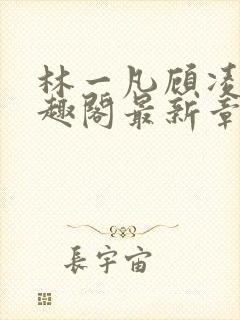 林一凡顾凌
趣阁最新章
長宇宙